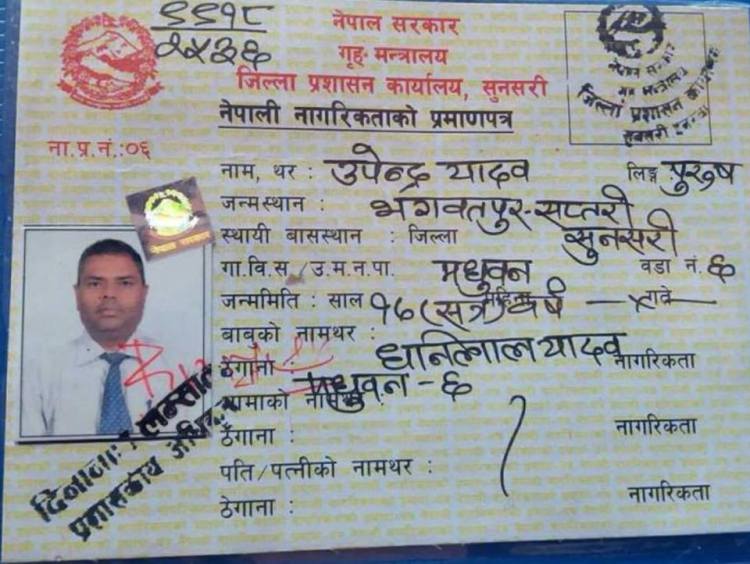 ९९१८
२५३६
नेपाल सरकार
गृह मन्त्रालय
जिल्ला प्रशासन कार्यालय, सुनसरी
नेपाली नागरिकताको प्रमाणपत्र
नेपाल सरकार
गृह मन्त्रालय
जिल्ला प्रशासन कार्यालय
ना.प्र.नं.:०६
नाम, थर : उपेन्द्र यादव लिङ्ग पुरुष
जन्मस्थान : भगवतपुर-सप्तरी
नेपाल सरकार
स्थायी बासस्थान : जिल्ला सुनसरी
गा.वि.स./उ.म.न.पा. मधुवन वडा नं. ६
जन्ममिति : साल १७ (सत्र) वर्ष गते
बाबुको नामथर : धानिलाल यादव
ठेगाना : मधुवन - ६ नागरिकता
आमाको
ठेगाना : नागरिकता
पति/पत्नीको नामथर :
ठेगाना : नागरिकता
प्रशासकीय अधिकृत